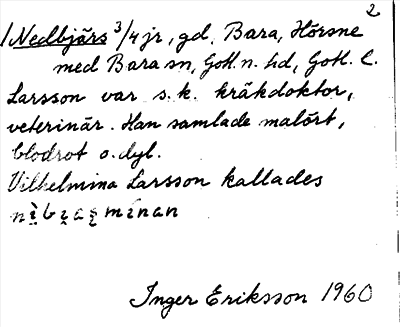 2
1 Nedbjärs 3/4 jr, gd. Bara, Hörsne
med Bara sn, Gotl. n. hd, Gotl. l.
Larsson var s.k. kräkdoktor,
veterinär. Han samlade malört,
blodrot o. dyl.
Vilhelmina Larsson kallades
Inger Eriksson 1960